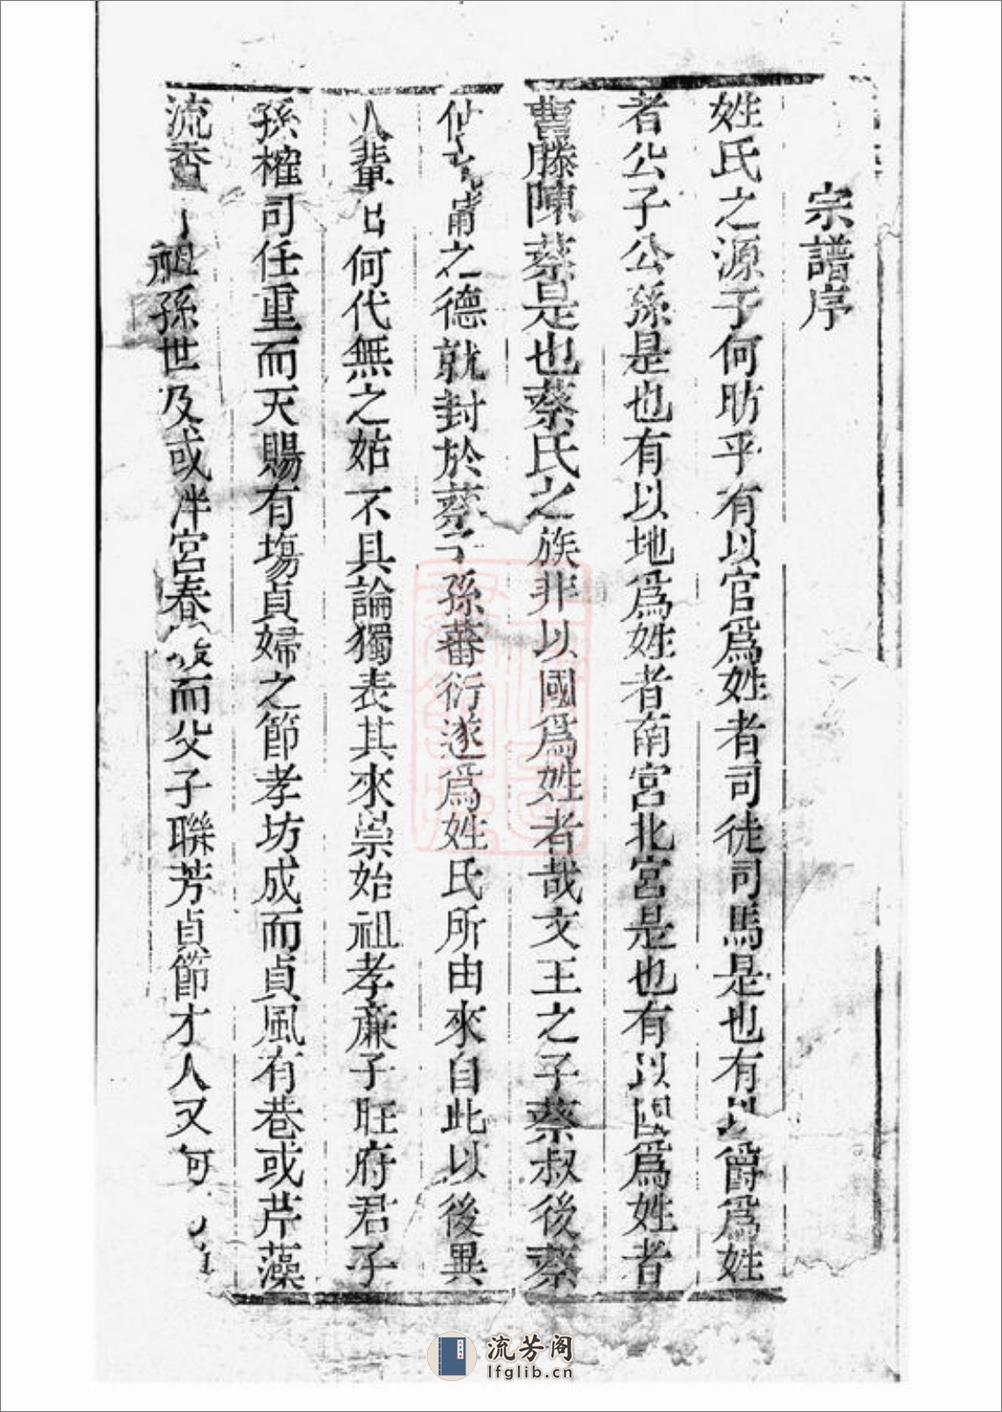 宗譜序
姓氏之源于何昉乎有以官爲姓者司徒司馬是也有以爵爲姓
者公子公孫是也有以地爲姓者南宮北宮是也有以國爲姓者
曹滕陳蔡是也蔡氏之族非以國爲姓者哉文王之子蔡叔後蔡
仲之德就封於蔡子孫蕃衍遂爲姓氏所由來自此以後異
人輩出何代無之姑不具論獨表其來崇始祖孝廉子旺府君子
孫權司任重而天賜有塲貞婦之節孝坊成而貞風有巷或芹藻
流香祖孫世及或泮宮春而父子聯芳貞節才人又何
流芳阁
lfglib.cn